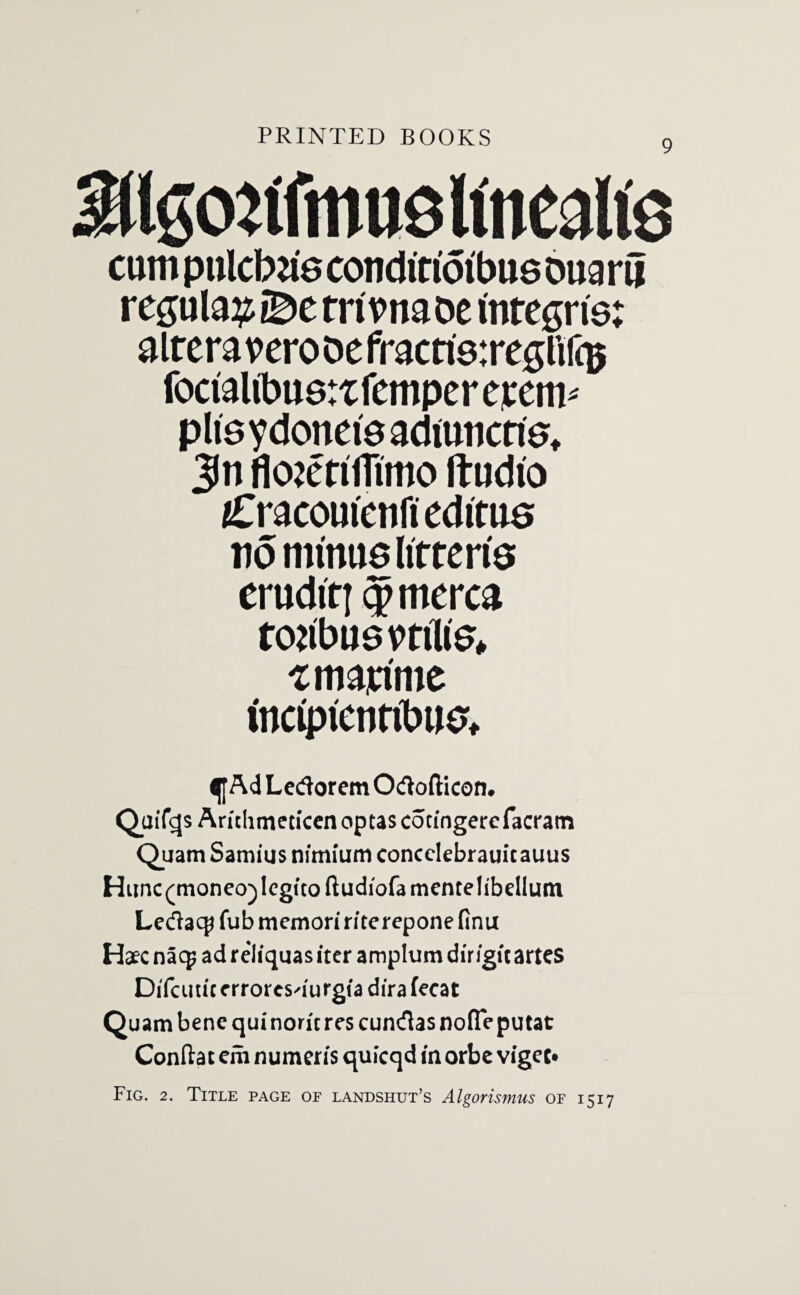 PRINTED BOOKS
9
Algoꝛiſmus linealis
cum pulchꝛis conditiōibus duarū
regulaꝝ De tri vna de integris:
altera vero de fractis: regliſꝗ
ſocialibus: ⁊ ſemper exem⸗
plis ydoneis adiunctis.
In floꝛētiſſimo ſtudio
Cracouienſi editus
nō minus litteris
eruditꝭ ꝙ merca
toꝛibus vtilis.
⁊ maxime
incipientibus.
¶ Ad Lectorem Octoſticon.
Quiſqs Arithmeticen optas cōtingere ſacram
Quam Samius nimium concelebrauit auus
Hunc (moneo) legito ſtudioſa mente libellum
Lectaqꝫ ſub memori rite repone ſinu
Hæc nāqꝫ ad reliquas iter amplum dirigit artes
Diſcutit errores/iurgia dira ſecat
Quam bene qui norit res cunctas noſſe putat
Conſtat em̄ numeris quicqd in orbe viget.
Fig. 2. Title page of landshut's Algorismus of 1517